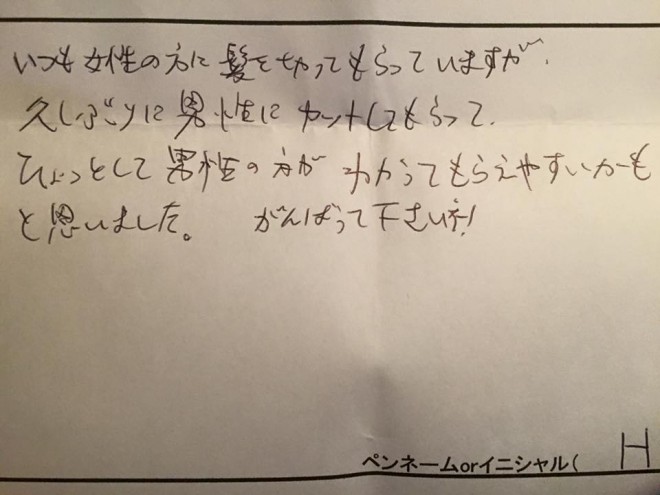 いつも女性の方に髪を切ってもらっていますが、
久しぶりに男性にカットしてもらって、
ひょっとして男性の方がわかってもらえやすいカーも
と思いました。 がんばって下さいネ!
ペンネームorイニシャル( H